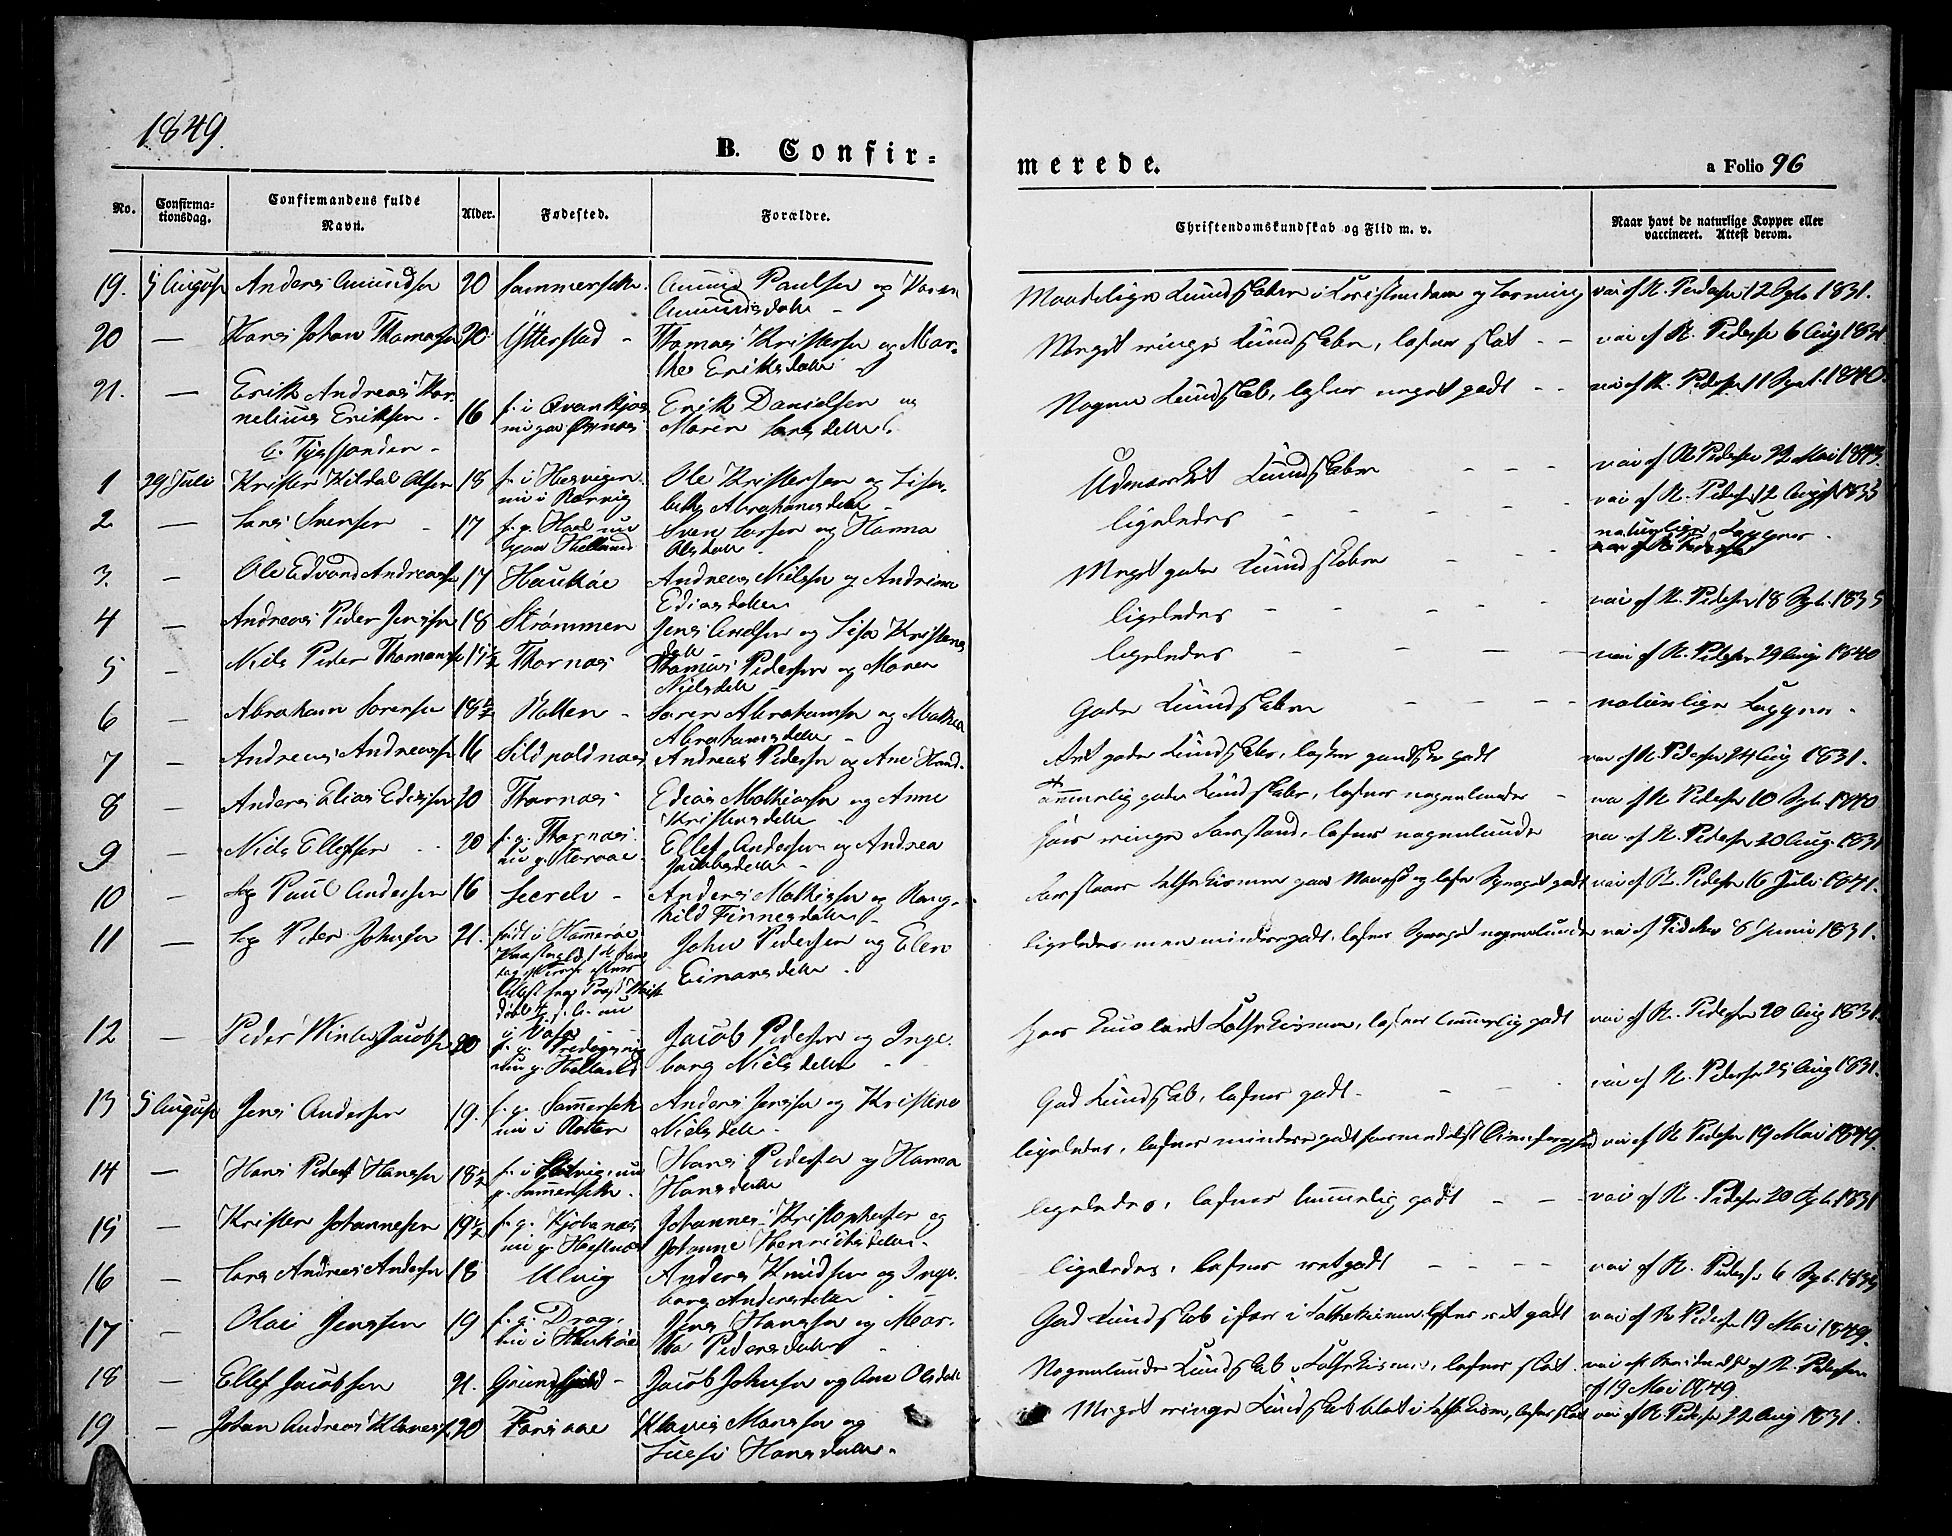 1849.
B. Confir=
merede.
a Folio 96
No.
Confirma-
tionsdag.
Confirmandens fulde
Navn.
Alder.
Fødested.
Forældre.
Christendomskundskab og Flid m. v.
Naar havt de naturlige Kopper eller
vaccineret. Attest derom.
19. 5 August Anders Amundsen 20 Sommersele. Amund Paulsen og Karen
Amundsdatter
Maadelige Kundskaber i Kristendom og Læsning vac. af N. Pedersen 12 Sept. 1831.
20 — Hans Johan Thomassen 20 Ytterstad - Thomas Kristensen og Mar-
the Eriksdatter
Meget ringe Kundskaber, læser slet - - vac. af N. Pedersen 6 Aug 1831
21. — Erik Andreas Kor-
nelius Eriksen - 16 f. i Qvænkjos Erik Danielsen og
nu paa Øxnes Maren Larsdatter.
b. Tysfjorden -
Nogen Kundskab, læser meget godt - - vac. af N. Pedersen 11 Sept. 1840.
1 29 Juli Krister Kildal Olsen 18 Ole Kristensen og Lisa-
beth Abrahamsdatter -
Udmærket Kundskaber - - - vac. af N. Pedersen 22 Mai 1843.
2 — Lars Svensen - 17 f. g. Hol nu
paa Helland Sven Larsen og Hanna
Olsdatter
ligeledes - - - vac. af N. Pedersen 12 August 1833
3. — Ole Edvard Andreassen 17 Haukøe Andreas Nielsen og Andrine
Ediasdatter
Meget gode Kundskaber - - naturlige Kopper -
4 — Andreas Peder Jensen 18 Strømmen Jens Andersen og Lisa Kristens
datter
ligeledes - - - vac. af N. Pedersen 18 Sept. 1835
5 — Niels Peder Thomassen 17½ Thornæs Thomas Pedersen og Maren
Nielsdatter -
ligeledes - - - vac. af N. Pedersen 29 Aug. 1840
6 — Abraham Sørensen 18½ Rotten - Søren Abrahamsen og Mathea
Abrahamsdatter -
Gode Kundskaber - - - naturlige Kopper -
7 — Andreas Andreassen 16 Sildpoldnæs Andreas Pedersen og Ane Hand-
Ret gode Kundskaber, læser gandske godt vac. af N. Pedersen 24 Aug 1831.
8 — Anders Elias Ediassen 20 Thornæs - Edias Mathiassen og Anne
Kristensdatter
Temmelig gode Kundskaber, læser nogenlunde - vac. af N. Pedersen 10 Sept. 1840
9 — Niels Ellefsen - - 20 f. g. Thornæs
Ellef Andersen og Andrea
Jacobsdatter -
har ringe Forstand, læser nogenlunde vac. af N. Pedersen 20 Aug. 1831
10 — Paul Andersen 16 Anders Mathisen og Rang-
hild Finnesdatter -
læser Sproget godt vac. af N. Pedersen 16 Juli 1841.
11 — Peder Johnsen 21. født i Hammerøe
John Pedersen og Elen
Einarsdatter -
ligeledes, men mindre godt, læser Sproget nogenlunde 8 Juni 1831.
12 — Peder Winter Jacobsen 20
nu g. Helland Jacob Pedersen og Inge-
borg Nielsdatter -
har kun lært Katekismen, læser temmelig godt vac. af N. Pedersen 20 Aug 1831.
13 5 August Jens Andersen 19. f. g. Sommersele
nu i Rotten Anders Jensen og Kristine
Nielsdatter -
God Kundskab, læser godt - - - vac. af N. Pedersen 25 Aug 1831.
14 — Hans Peder Hansen 18½
g. Sommersele - Hans Pedersen og Hanna
Hansdatter
ligeledes, læser mindre godt formedelst vac. af N. Pedersen 19 Mai 1849.
15 — Krister Johannesen 19½ f. g. Kjøbenæs
nu g. Hæstnæs Johannes Kristophersen og
Johanne Henriksdatter -
ligeledes, læser temmelig godt - - vac. af N. Pedersen 20 Sept. 1831
16 — Lars Andreas Andersen 18 Ulvig Anders Knudsen og Inge-
borg Andersdatter -
ligeledes, læser ret godt - - - - vac. af N. Pedersen 6 Sept. 1835
17 — Olai Jenssen 19 f. g. Drag,
nu i Haukøe Jens Hansen og Mar-
tha Pedersdatter -
God Kundskab især i Katekismen, læser ret godt vac. af N. Pedersen 19 Mai 1849.
18 — Ellef Jacobsen 21. Grundfjord - Jacob Johnsen og Ane Olsdatter
Nogenlunde Kundskab i Katekismen, læser slet. N. Pedersen
af 19 Mai 1849.
19 — Johan Andreas Klausen 20 Forsaae Klaus Monssen og
Lucsi Hansdatter -
Meget ringe Kundskab blot i Katekism, læser slet vac. af N. Pedersen 22 Aug 1831.